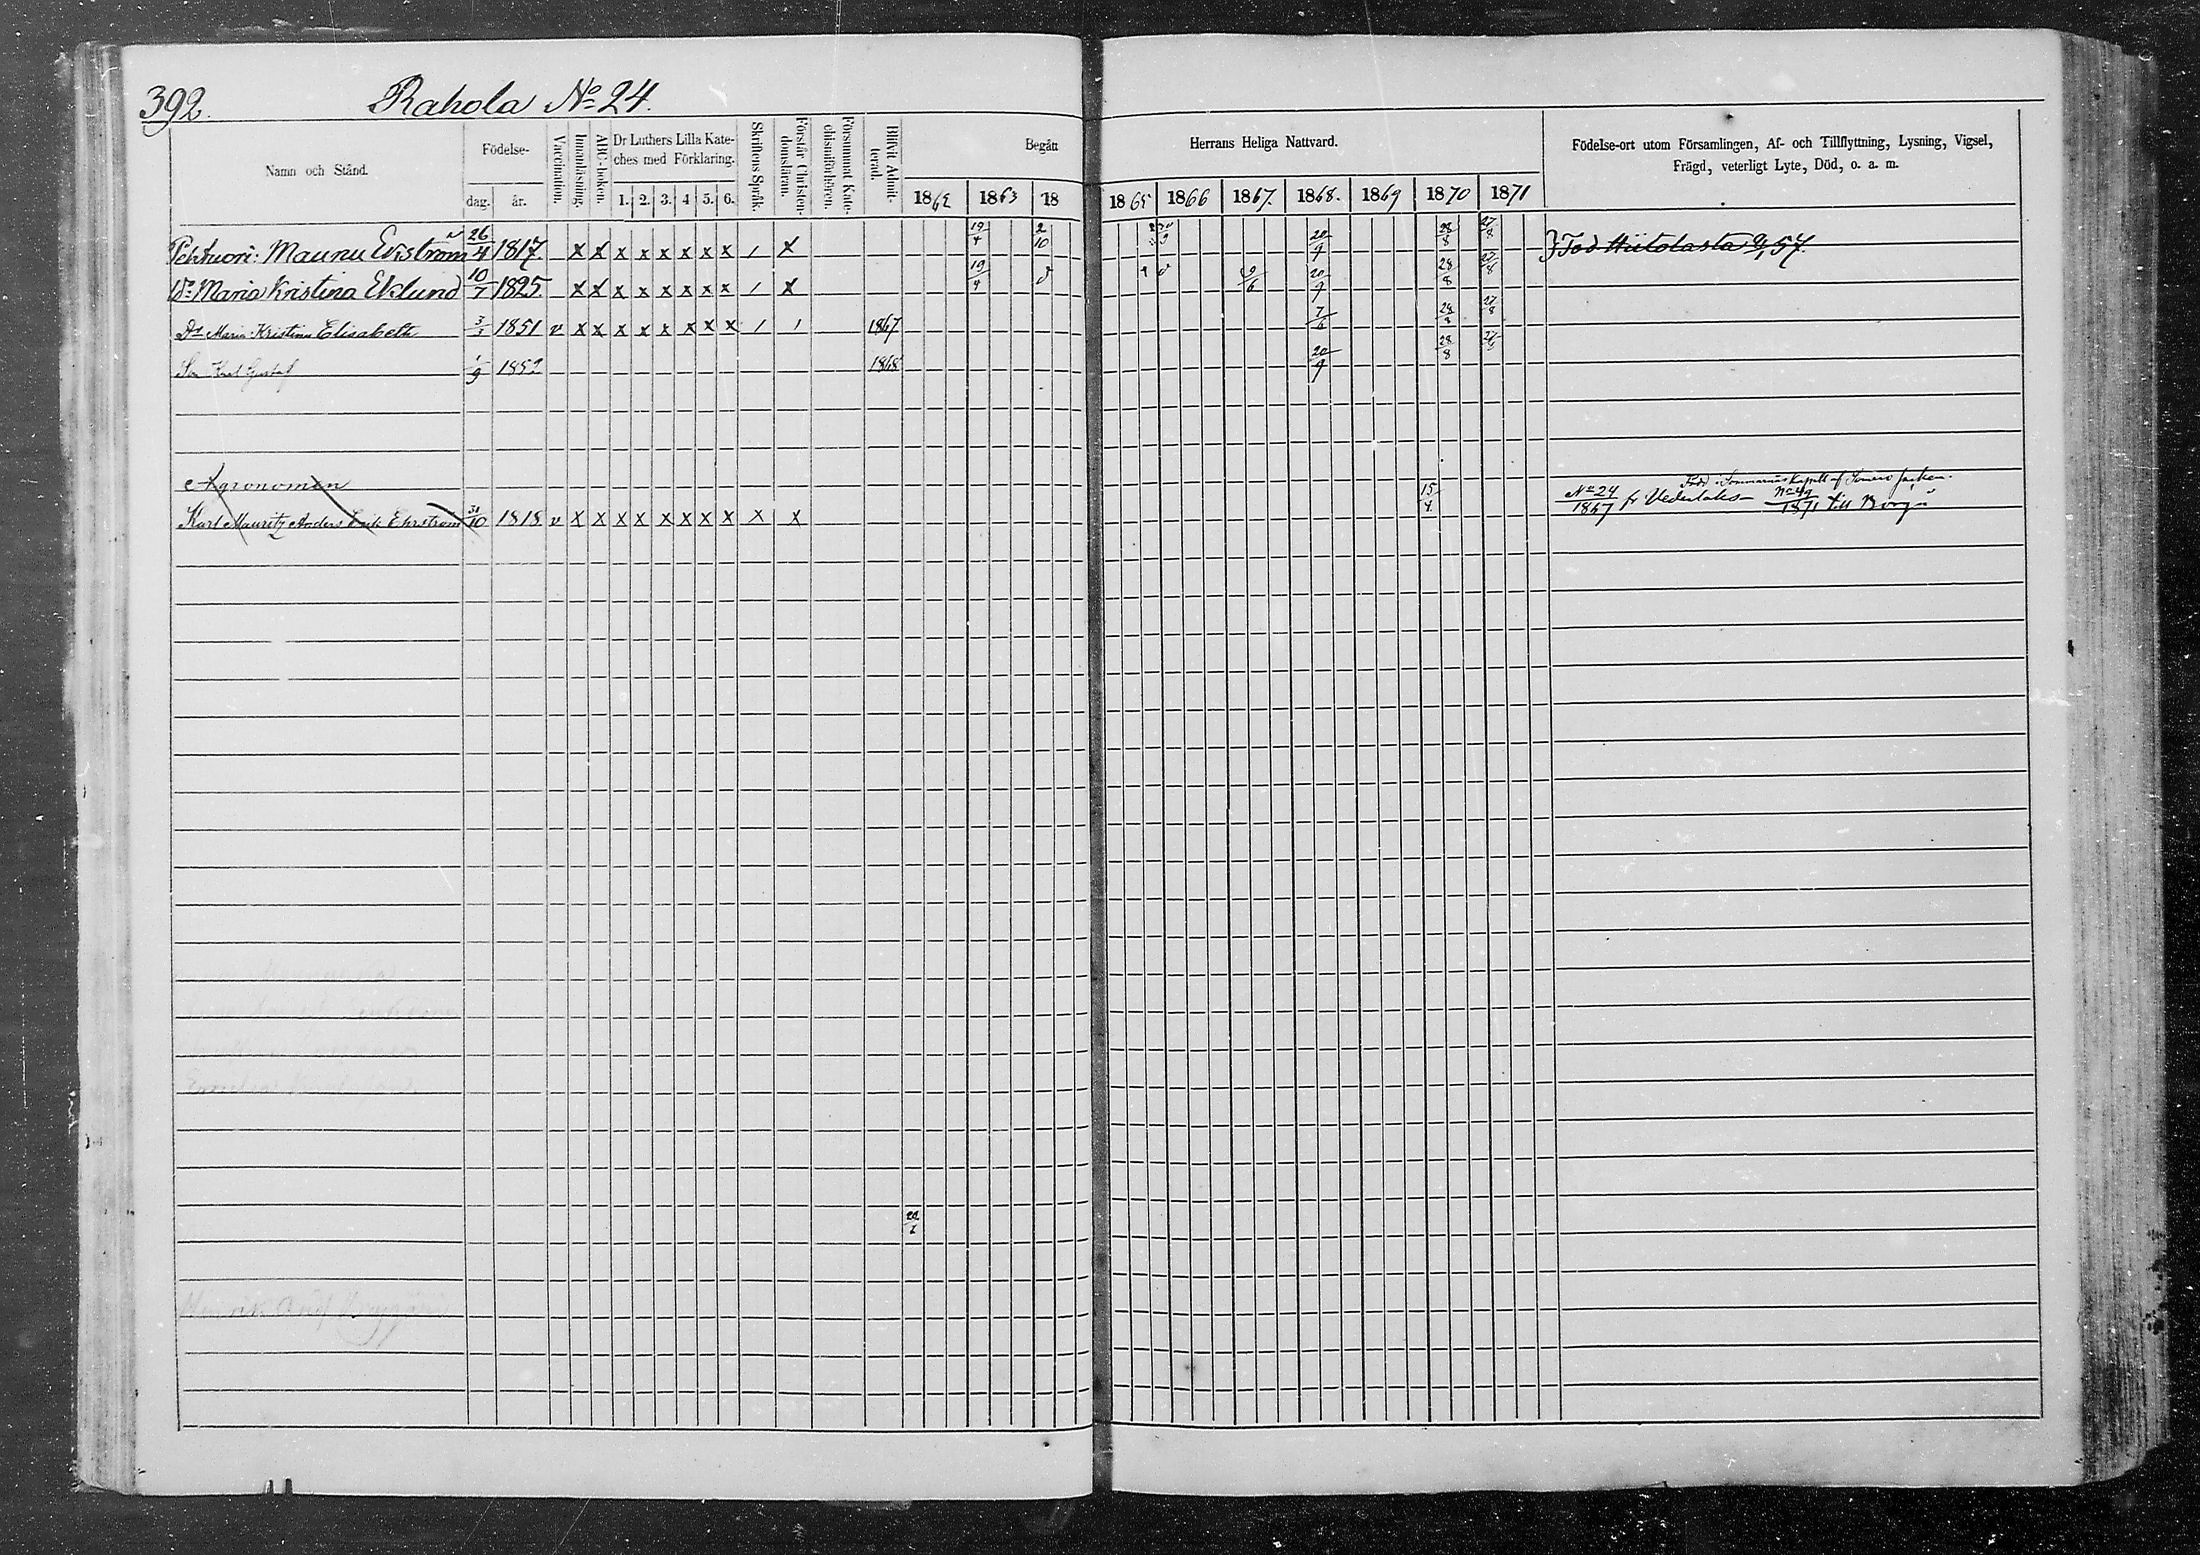 392. Rahola No 24.
Namn och Stånd. Födelse- dag. år. Vaccination. Innanläsning. ABC-boken. Dr Luthers Lilla Kate-ches med Förklaring. 1. 2. 3. 4 5. 6. Skriftens Språk. Förstår Christen-domsläran. Försummat Kate-chismiförhören. Blifvit Admit-terad. Begått Herrans Heliga Nattvard. 1862 1863 18 1865 1866 1867. 1868. 1869 1870 1871
Födelse-ort utom Församlingen, Af- och Tillflyttning, Lysning, Vigsel,
Frägd, veterligt Lyte, Död, o. a. m.
Maunu Ekström 26/4 1817. x x x x x x x x / x 19/4 2/10 20/9 28/8 27/8 Tod Hiitolasta 57.
Maria Kristina Eklund 10/7 1825. x x x x x x x x / x 19/4 9/6 20/9 28/8 27/8
Dr Maria Kristina Elisabeth 1851 v x x x x x x x x / / 1867 7/6 28/8 27/8
Son Karl Gustaf 1/9 1852 1868 20/9 28/8
Agronomen
Karl Mauritz Anders Erik Ehrström 31/10 1818 v x x x x x x x x x x 15/4 No 24/1867 fr Vederlaks No 49/1871 till Borgå
Född i Sommarnäs Kapell af Somero socken.